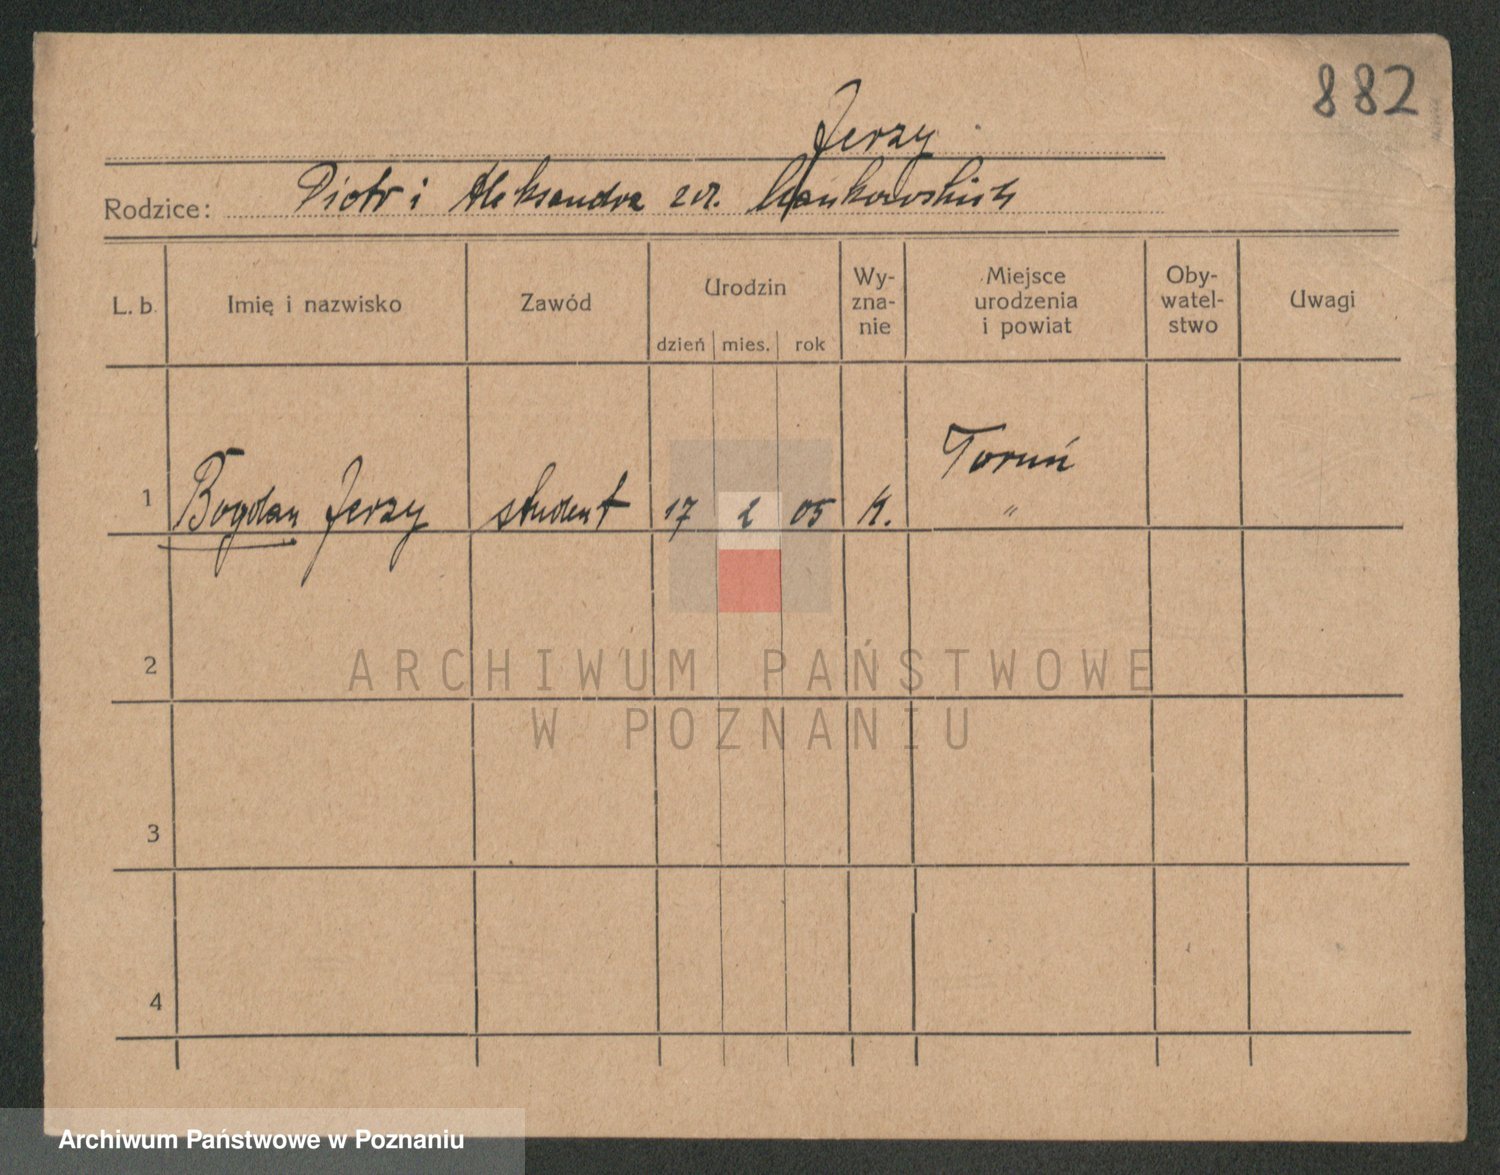 882
Jerzy
Rodzice: Piotr i Aleksandra
L. b. Imię i nazwisko Zawód Urodzin Wy-zna-nie Miejsce urodzenia i powiat Oby-watel-stwo Uwagi
dzień mies. rok
Toruń
1 Bogdan Jerzy student 17 2 05 K. "
2
ARCHIWUM PAŃSTWOWE
W POZNANIU
3
4
Archiwum Państwowe w Poznaniu